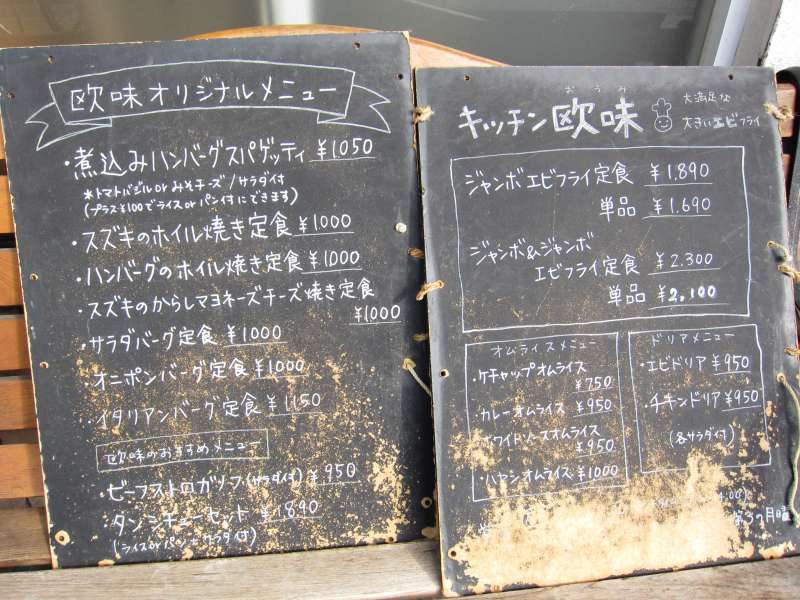 欧味オリジナルメニュー
・煮込みハンバーグスパゲッティ ¥1.050
*トマトバジル or みそチーズ/サラダ付
(プラス¥100でライス or パン付にできます)
・スズキのホイル焼き定食 ¥1.000
・ハンバーグのホイル焼き定食 ¥1.000
・スズキのからしマヨネーズチーズ焼き定食
¥1000
・サラダバーグ定食 ¥1000
・オニポンバーグ定食 ¥1000
・イタリアンバーグ定食 ¥1150
欧味のおすすめメニュー
・ビーフストロガノフ(サラダ付) ¥950
・タンシチューセット ¥1.890
(ライス or パン + サラダ付)
おうみ
キッチン欧味
大満足な
大きいエビフライ
ジャンボエビフライ定食 ¥1.890
単品 ¥1.690
ジャンボ&ジャンボ
エビフライ定食 ¥2.300
単品 ¥2,100
オムライスメニュー
・ケチャップオムライス
¥750
・カレーオムライス ¥950
・ホワイトソースオムライス
¥950
・ハヤシオムライス ¥1000
ドリアメニュー
・エビドリア ¥950
・チキンドリア ¥950
(各サラダ付)
第3の月曜